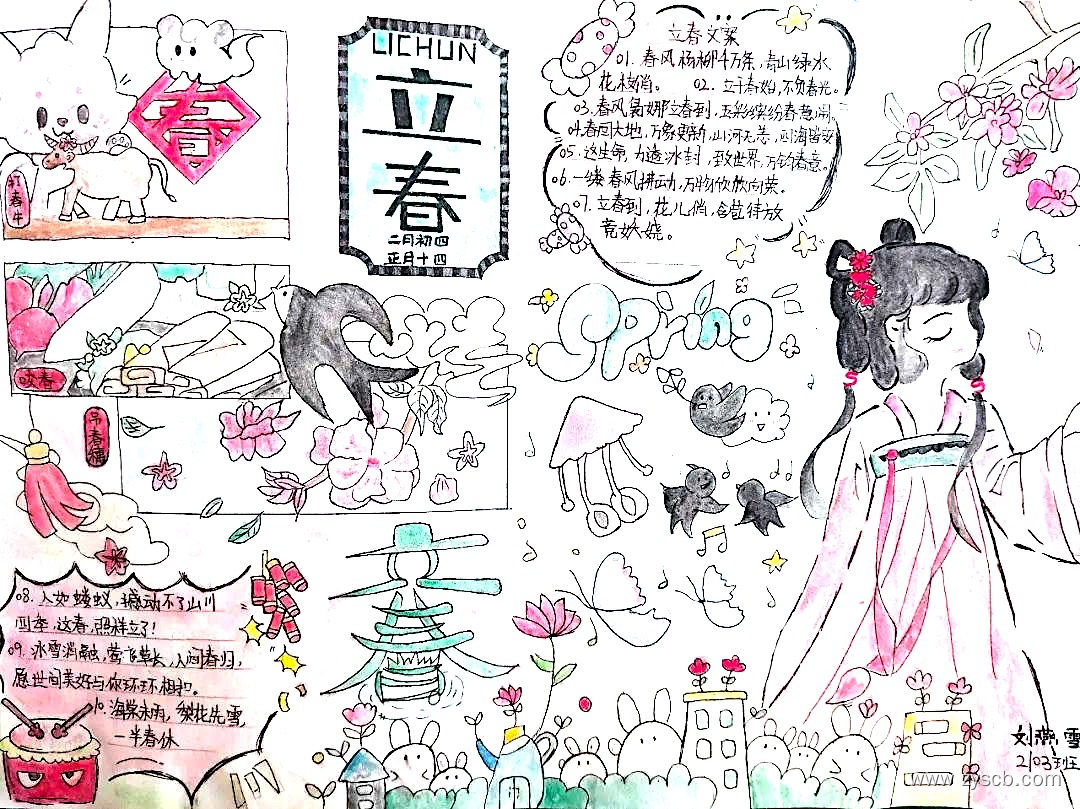 春
打春牛
LICHUN
立
春
二月初四
正月十四
立春文案
01. 春风杨柳千万条,青山绿水
花枝俏。 02. 立于春始,不负春光。
03. 春风袅娜立春到,五彩缤纷春意闹
04. 春回大地,万象更新,山河无恙,四海皆安
05. 这生命,力透冰封,致世界,万钧春意。
06. 一缕春风拂动,万物欣欣向荣。
07. 立春到,花儿俏,含苞待放
竞妖娆。
咬春
Spring
08. 人如蝼蚁,撼动不了山川
四季,这春,照样立了!
09. 冰雪消融,莺飞草长,人间春归,
愿世间美好与你环环相扣。
10. 海棠未雨,梨花先雪,
一半春休
刘燕雪
2103班
www.zyscb.com